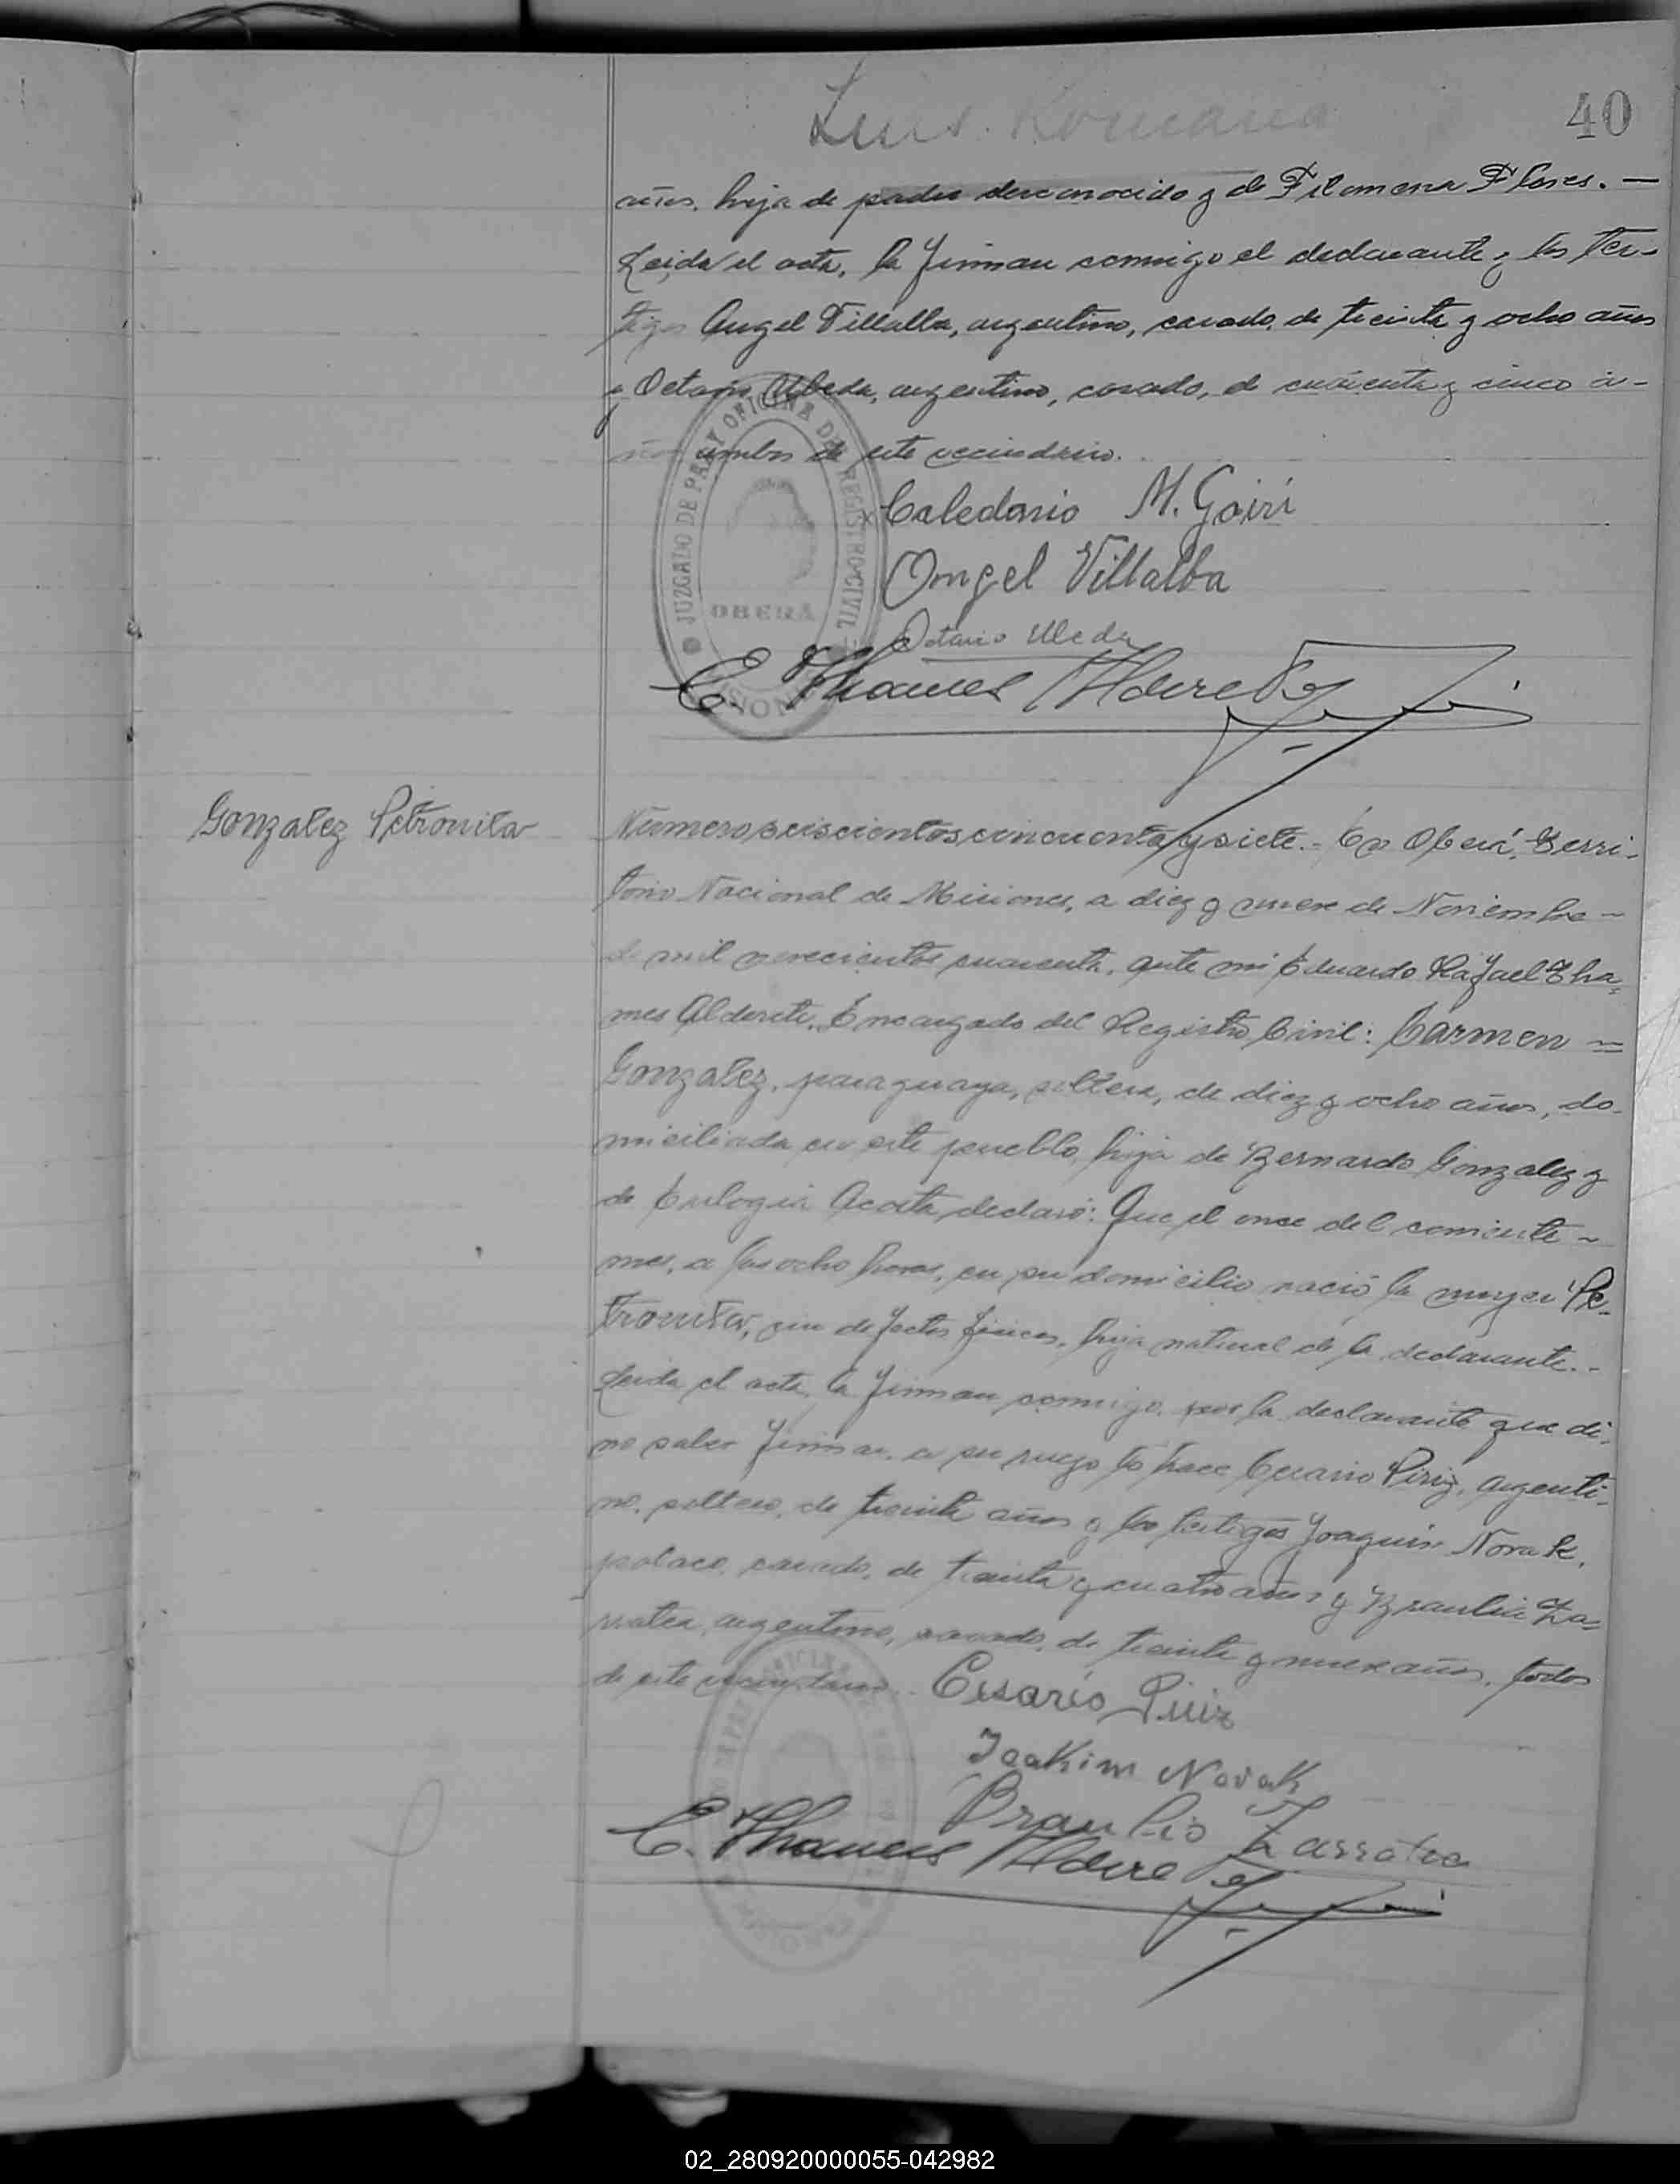 40
Luis Romana
años, hija de padre desconocido y de Filomena Flores. —
Leida el acta, la firman conmigo el declarante y los tes-
tigos Angel Villalba, argentino, casado, de treinta y ocho años
y Octavio Ubeda, argentino, casado, de cuarenta y cinco a-
ños ambos de este vecindario.
JUZGADO DE PAZ Y OFICINA DE REGISTRO CIVIL
OBERÁ
MISIONES
Celedonio M. Goiri
Angel Villalba
Octavio Ubeda
E. Thames Alderete
Gonzalez Petronila
Número seiscientos cincuenta y siete.- En Oberá, Terri-
torio Nacional de Misiones, a diez y nueve de Noviembre -
de mil novecientos cuarenta, ante mi Eduardo Rafael Tha-
mes Alderete, Encargado del Registro Civil: Carmen =
Gonzalez, paraguaya, soltera, de diez y ocho años, do-
miciliada en este pueblo, hija de Bernardo Gonzalez y
de Eulogia Acosta, declaró: Que el once del corriente -
mes, a las ocho horas, en su domicilio nació la mujer Pe-
tronila, sin defectos físicos, hija natural de la declarante.-
Leida el acta, la firman conmigo, por la declarante que di-
no saber firmar, a su ruego lo hace Cesario Piriz, argenti-
no, soltero, de treinta años y los testigos Joaquin Novak,
polaco, casado, de treinta y cuatro años y Braulio Za-
rratea, argentino, casado, de treinta y nueve años, todos
de este vecindario.
Cesario Piriz
Joakim Novak
Braulio Zarratea
E. Thames Alderete
02_280920000055-042982